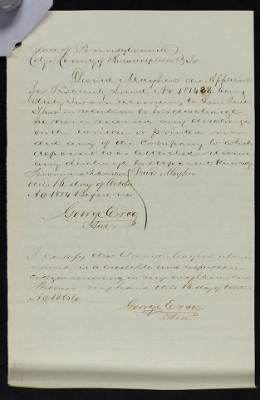 State of Pennsylvania
City & County of Philadelphia } Ss.
David Mayhew an Applicant
for Bounty Land No 181428 being
duly Sworn according to Law Saith
That in relation to his discharge
he never received any discharge
either written or printed nor
did any of the Company to which
deponent was attached receive
any discharge to deponents knowledge
Sworn and Subscribed } David Mayhew
this 16 day of October
AD 1854 Before me
George
Ald.
I Certify that David Mayhew above
named is a credible and respectable
citizen
Witness my hand this 16 day of October
AD 1854
George
Ald.